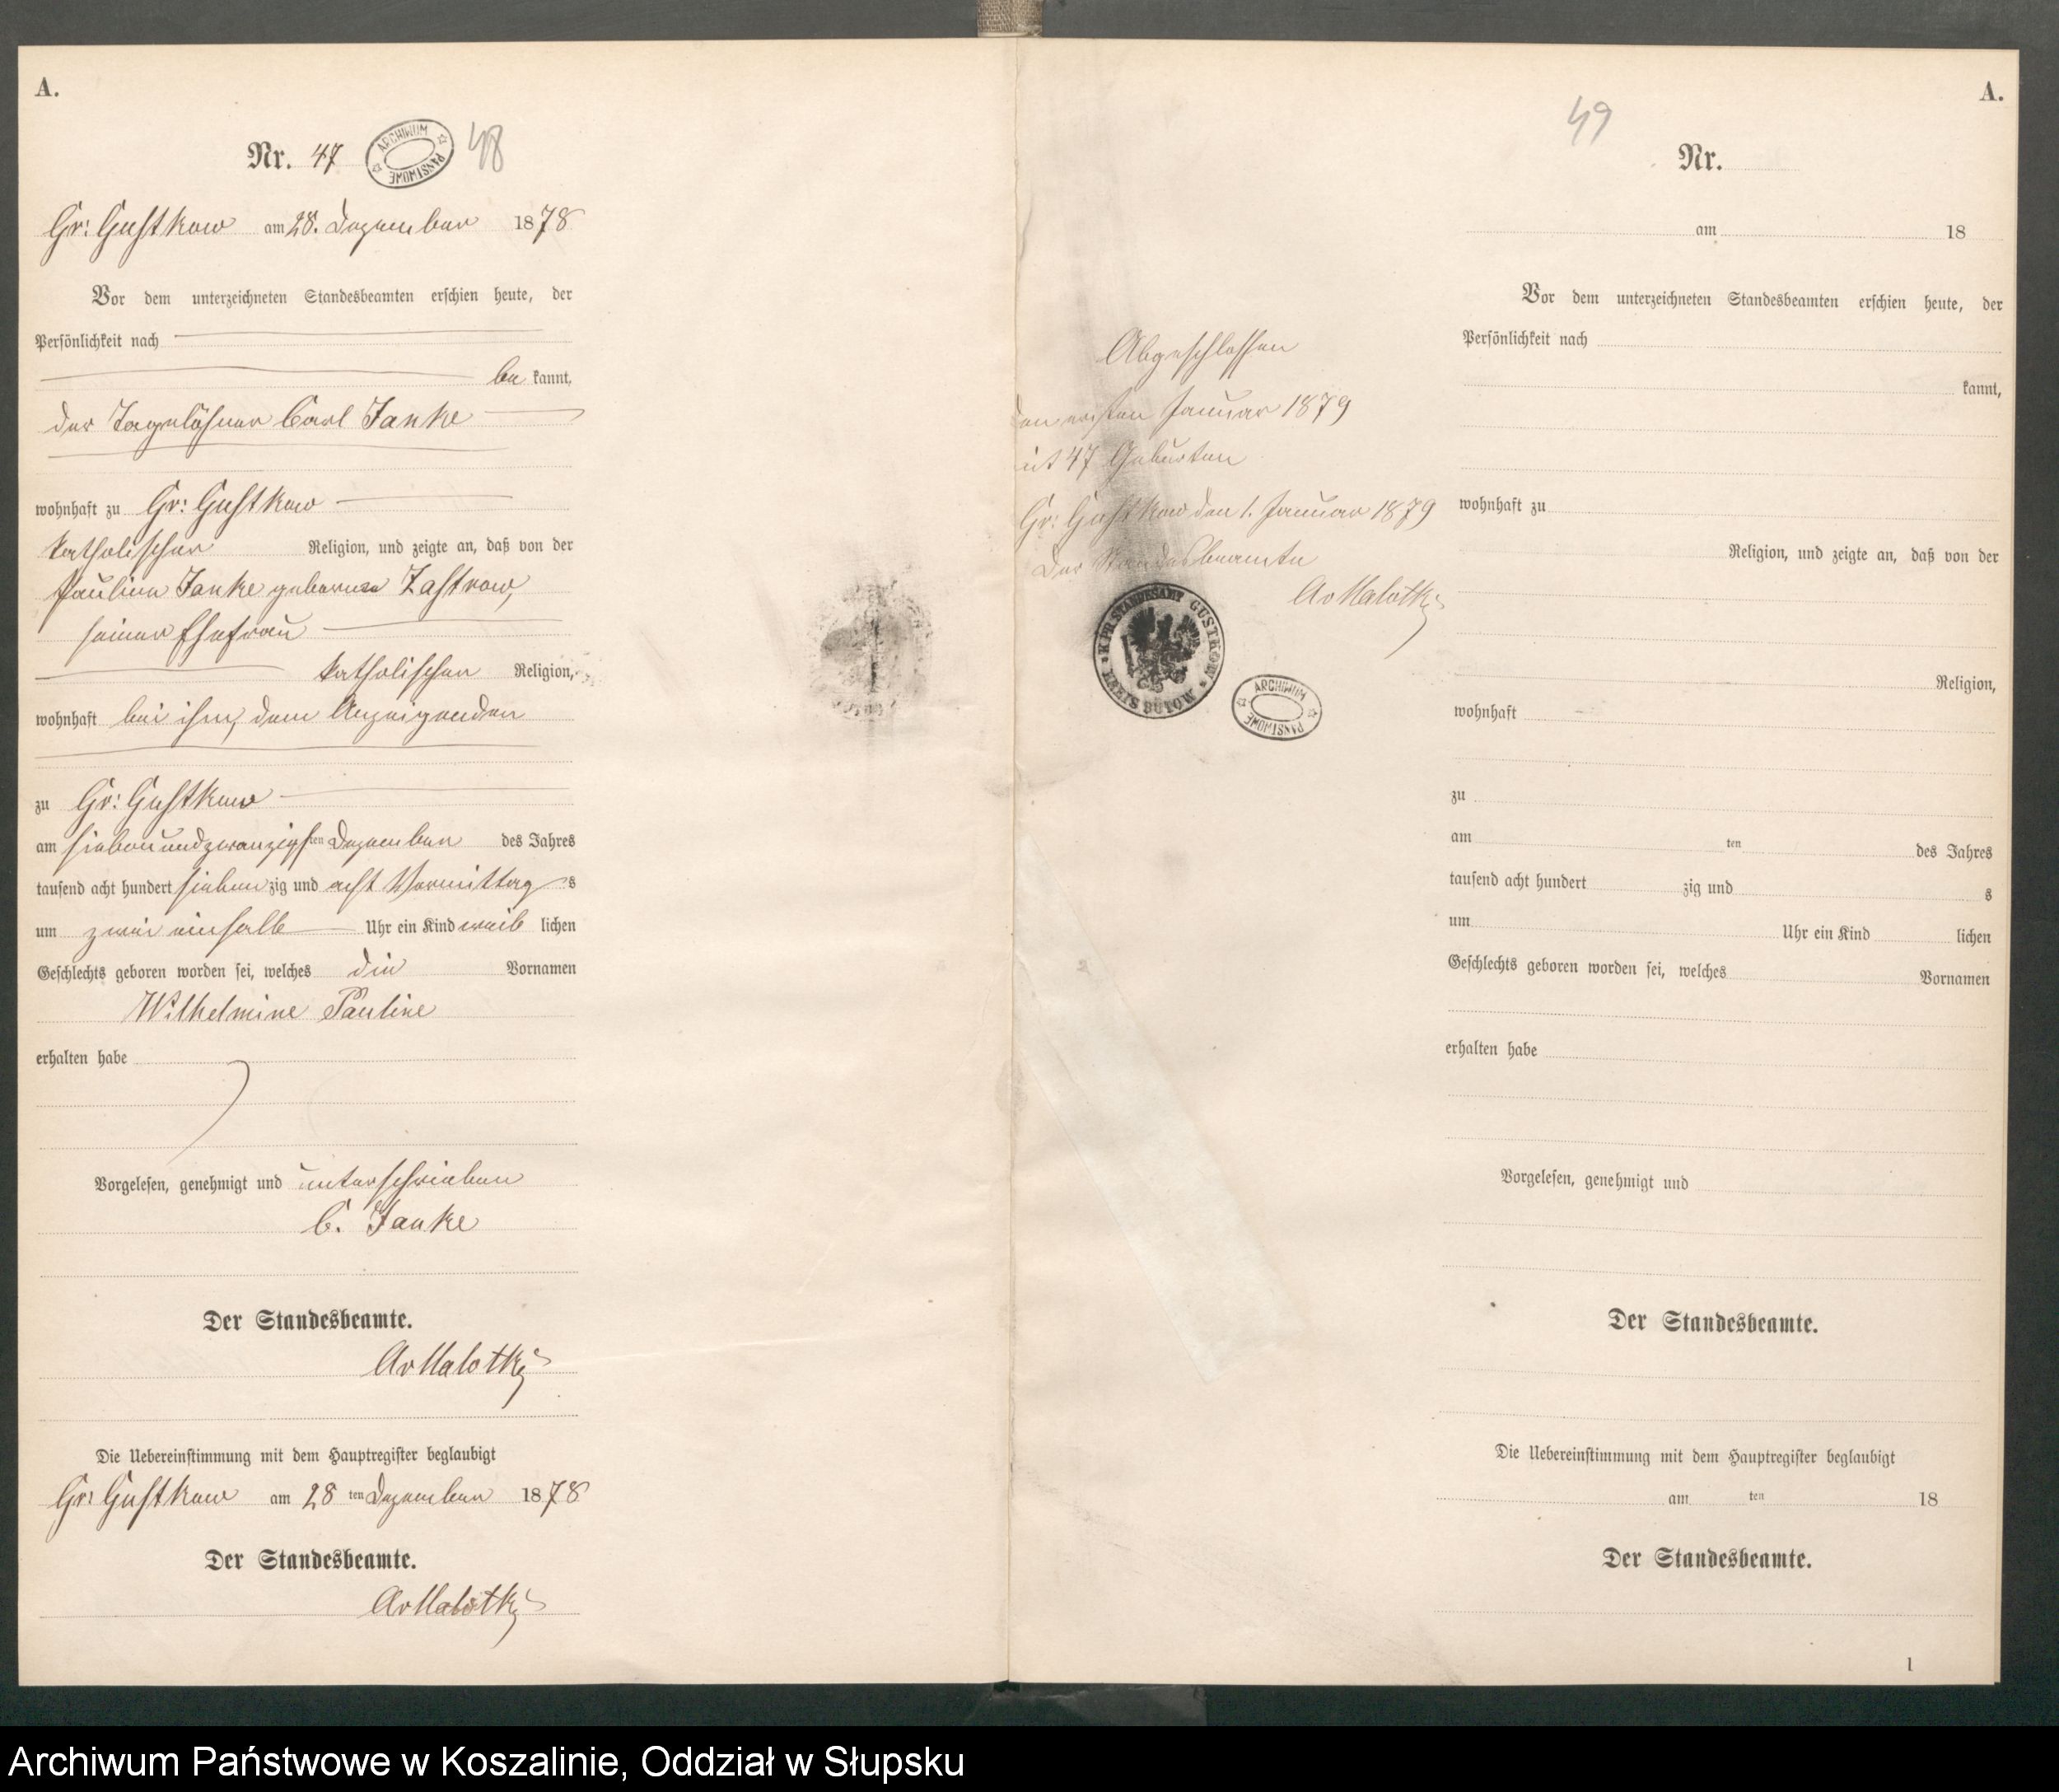 A.
Nr. 47
ARCHIWUM PAŃSTWOWE
48
Gr: Gustkow am 28. Dezember 1878
Vor dem unterzeichneten Standesbeamten erschien heute, der
Persönlichkeit nach
be kannt,
der Tagelöhner Carl Janke
wohnhaft zu Gr: Gustkow
katholischer Religion, und zeigte an, daß von der
Pauline Janke geborene Zastrow,
seiner Ehefrau
katholischen Religion,
wohnhaft bei ihm, dem Anzeigenden
zu Gr: Gustkow
am siebenundzwanzigsten Dezember des Jahres
tausend acht hundert siebenzig und acht Vormittags
um zwei einhalb Uhr ein Kind weiblichen
Geschlechts geboren worden sei, welches die Vornamen
Wilhelmine Pauline
erhalten habe
Vorgelesen, genehmigt und unterschrieben
C. Janke
Der Standesbeamte.
AvMalottky
Die Uebereinstimmung mit dem Hauptregister beglaubigt
Gr: Gustkow am 28 ten Dezember 1878
Der Standesbeamte.
AvMalottky
Abgeschlossen
den ersten Januar 1879
mit 47 Geburten
Gr: Gustkow den 1. Januar 1879
Der Standesbeamte
AvMalottky
K. PR. STANDESAMT GUSTKOW
KREIS BÜTOW
ARCHIWUM PAŃSTWOWE
A.
49
Nr.
am 18
Vor dem unterzeichneten Standesbeamten erschien heute, der
Persönlichkeit nach
kannt,
wohnhaft zu
Religion, und zeigte an, daß von der
Religion,
wohnhaft
zu
am ten des Jahres
tausend acht hundert zig und s
um Uhr ein Kind lichen
Geschlechts geboren worden sei, welches Vornamen
erhalten habe
Vorgelesen, genehmigt und
Der Standesbeamte.
Die Uebereinstimmung mit dem Hauptregister beglaubigt
am ten 18
Der Standesbeamte.
1
Archiwum Państwowe w Koszalinie, Oddział w Słupsku